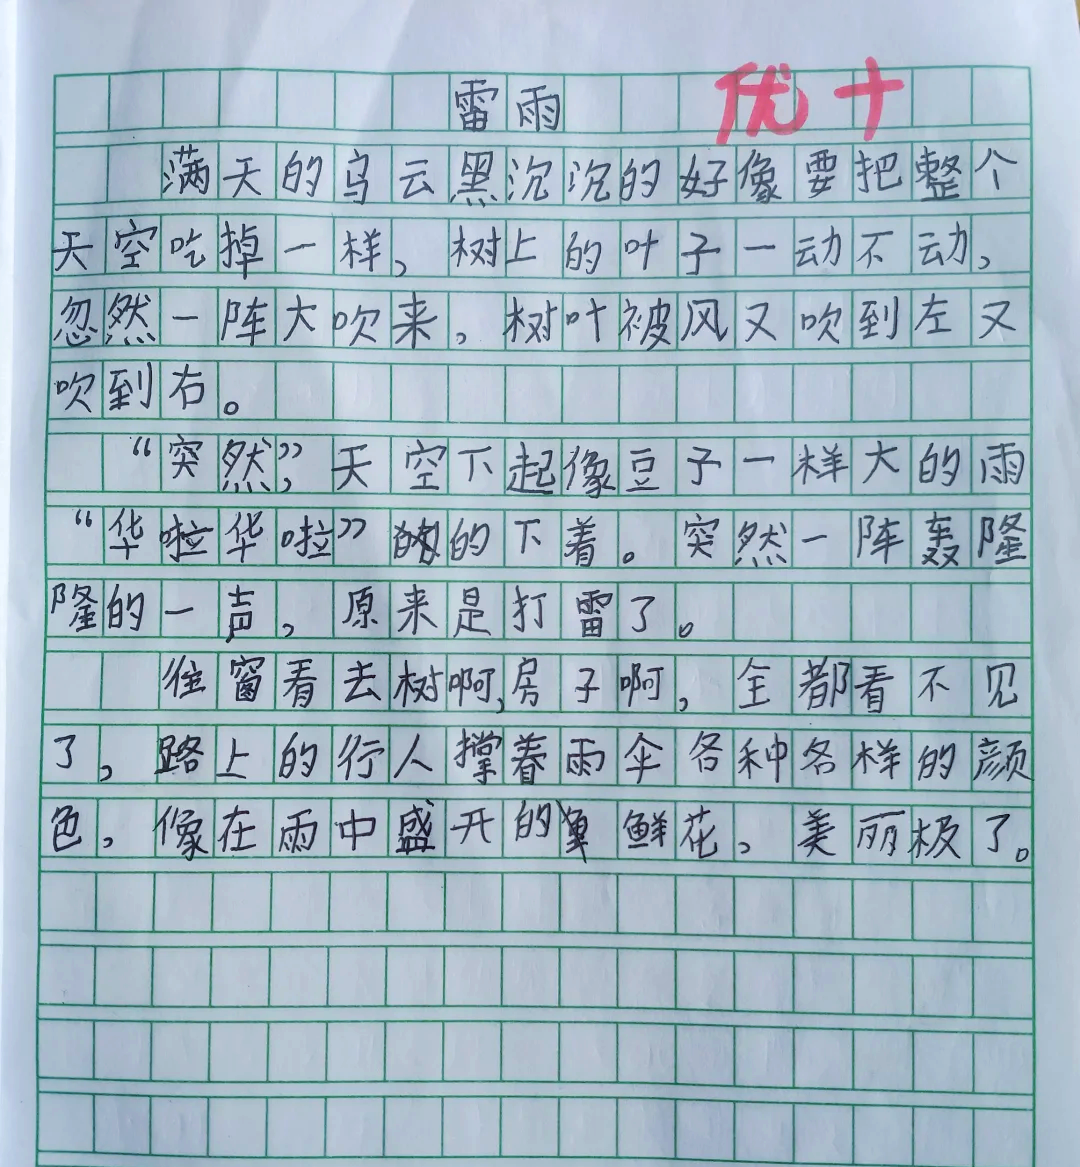 雷雨 优+
满天的乌云黑沉沉的好像要把整个
天空吃掉一样，树上的叶子一动不动，
忽然一阵大吹来，树叶被风又吹到左又
吹到右。
“突然”，天空下起像豆子一样大的雨
“华啦华啦”的的下着。突然一阵轰隆
隆的一声，原来是打雷了。
往窗看去树啊，房子啊，全都看不见
了，路上的行人撑着雨伞各种各样的颜
色，像在雨中盛开的鲜花，美丽极了。